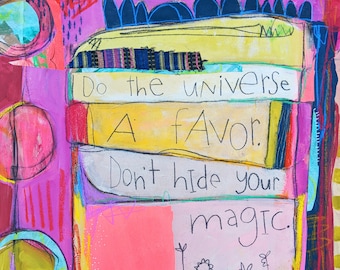 Do the universe
A favor.
Don't hide your
magic.